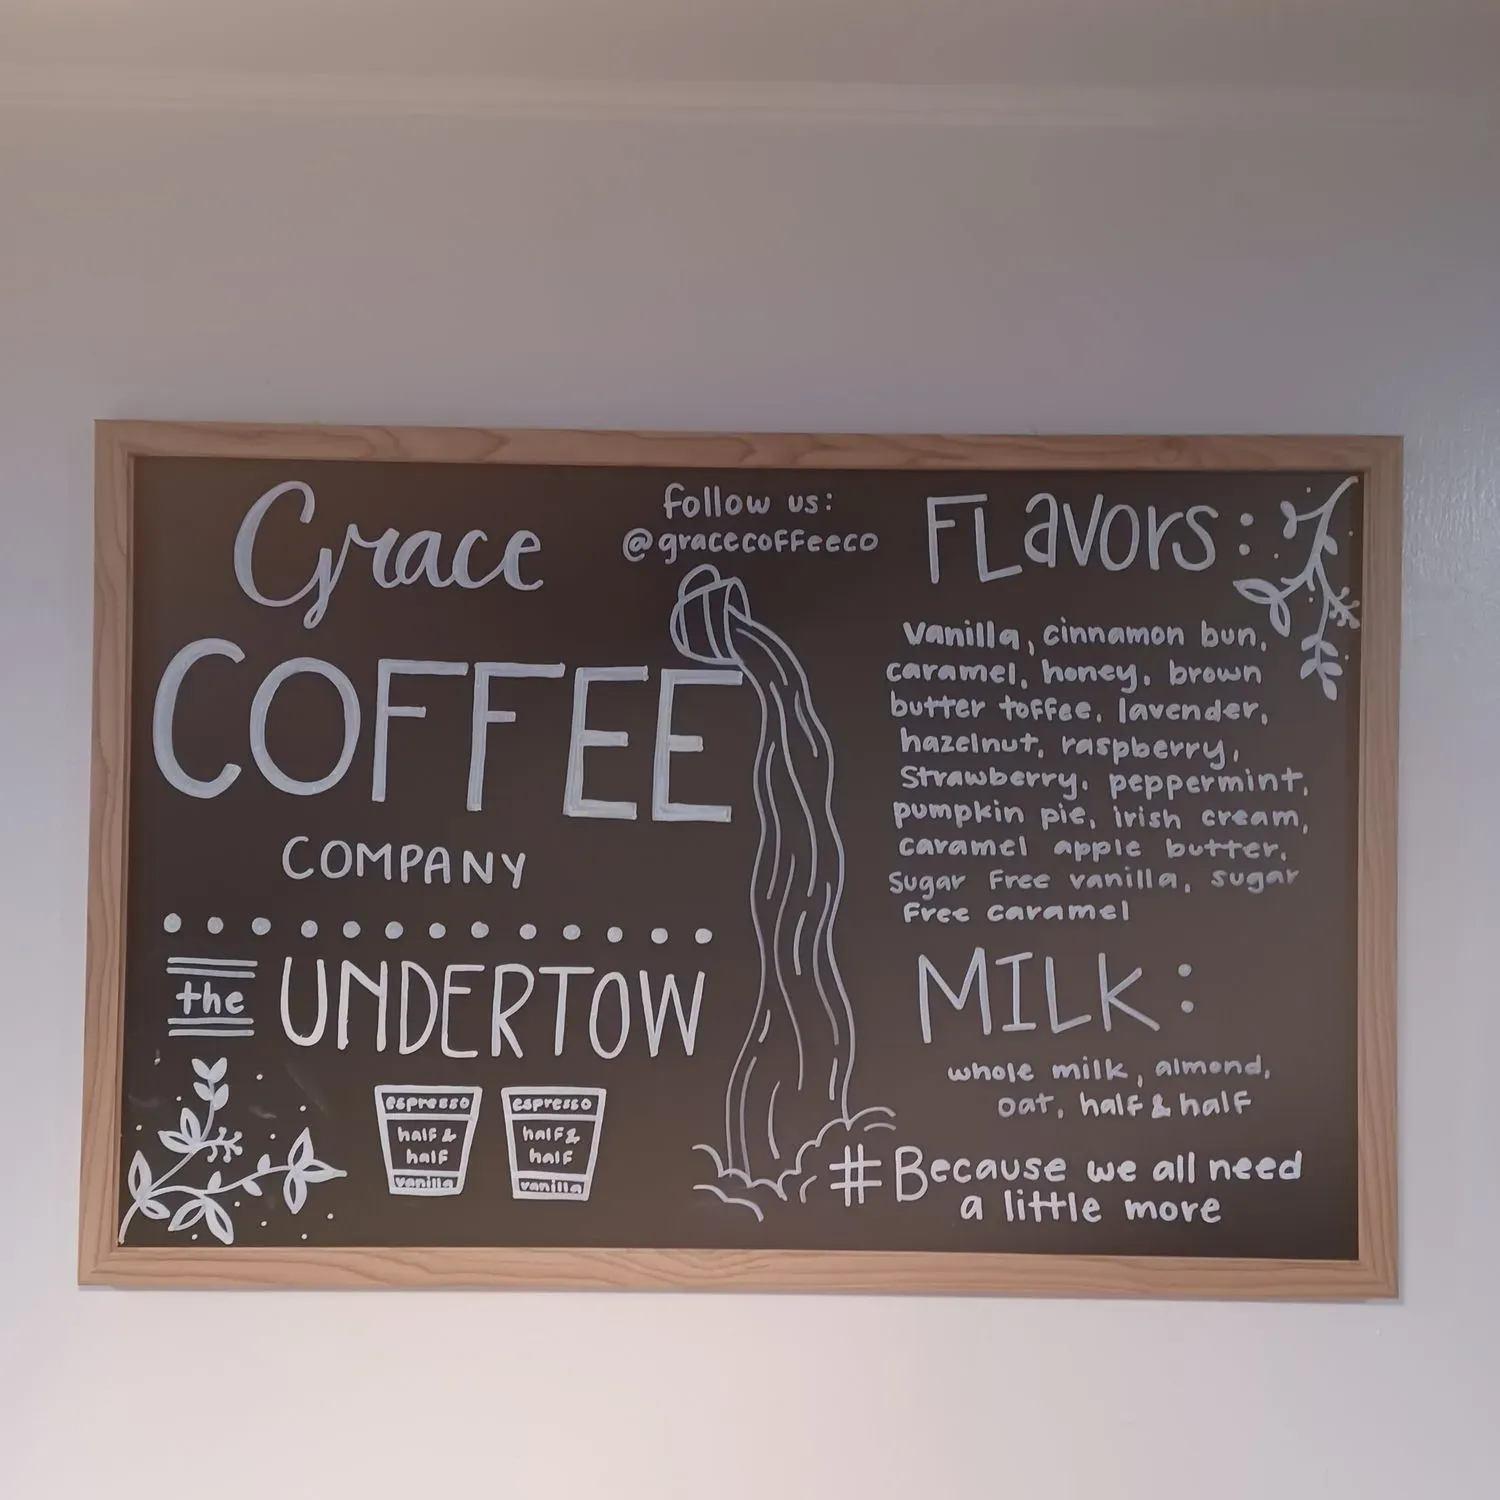 Grace
COFFEE
COMPANY
the UNDERTOW
espresso
half &
half
vanilla
espresso
half &
half
vanilla
follow us:
@gracecoffeeco
FLavors:
Vanilla, cinnamon bun,
caramel, honey, brown
butter toffee, lavender,
hazelnut, raspberry,
Strawberry, peppermint,
pumpkin pie, irish cream,
caramel apple butter,
Sugar Free vanilla, sugar
Free caramel
MILK:
whole milk, almond,
oat, half & half
#Because we all need
a little more